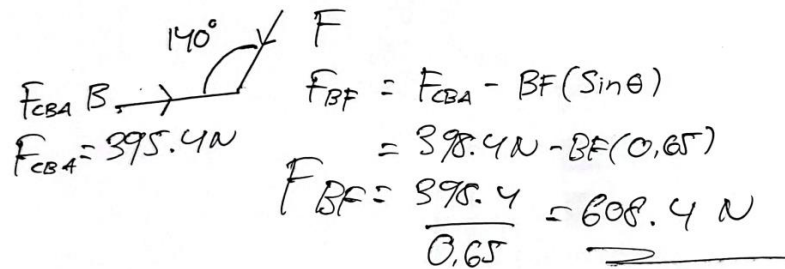 140° F
F_CBA B
F_CBA = 395.4N
F_BF = F_CBA - BF(Sinθ)
= 398.4N - BF(0,65)
F_BF = 398.4 / 0,65 = 608.4 N